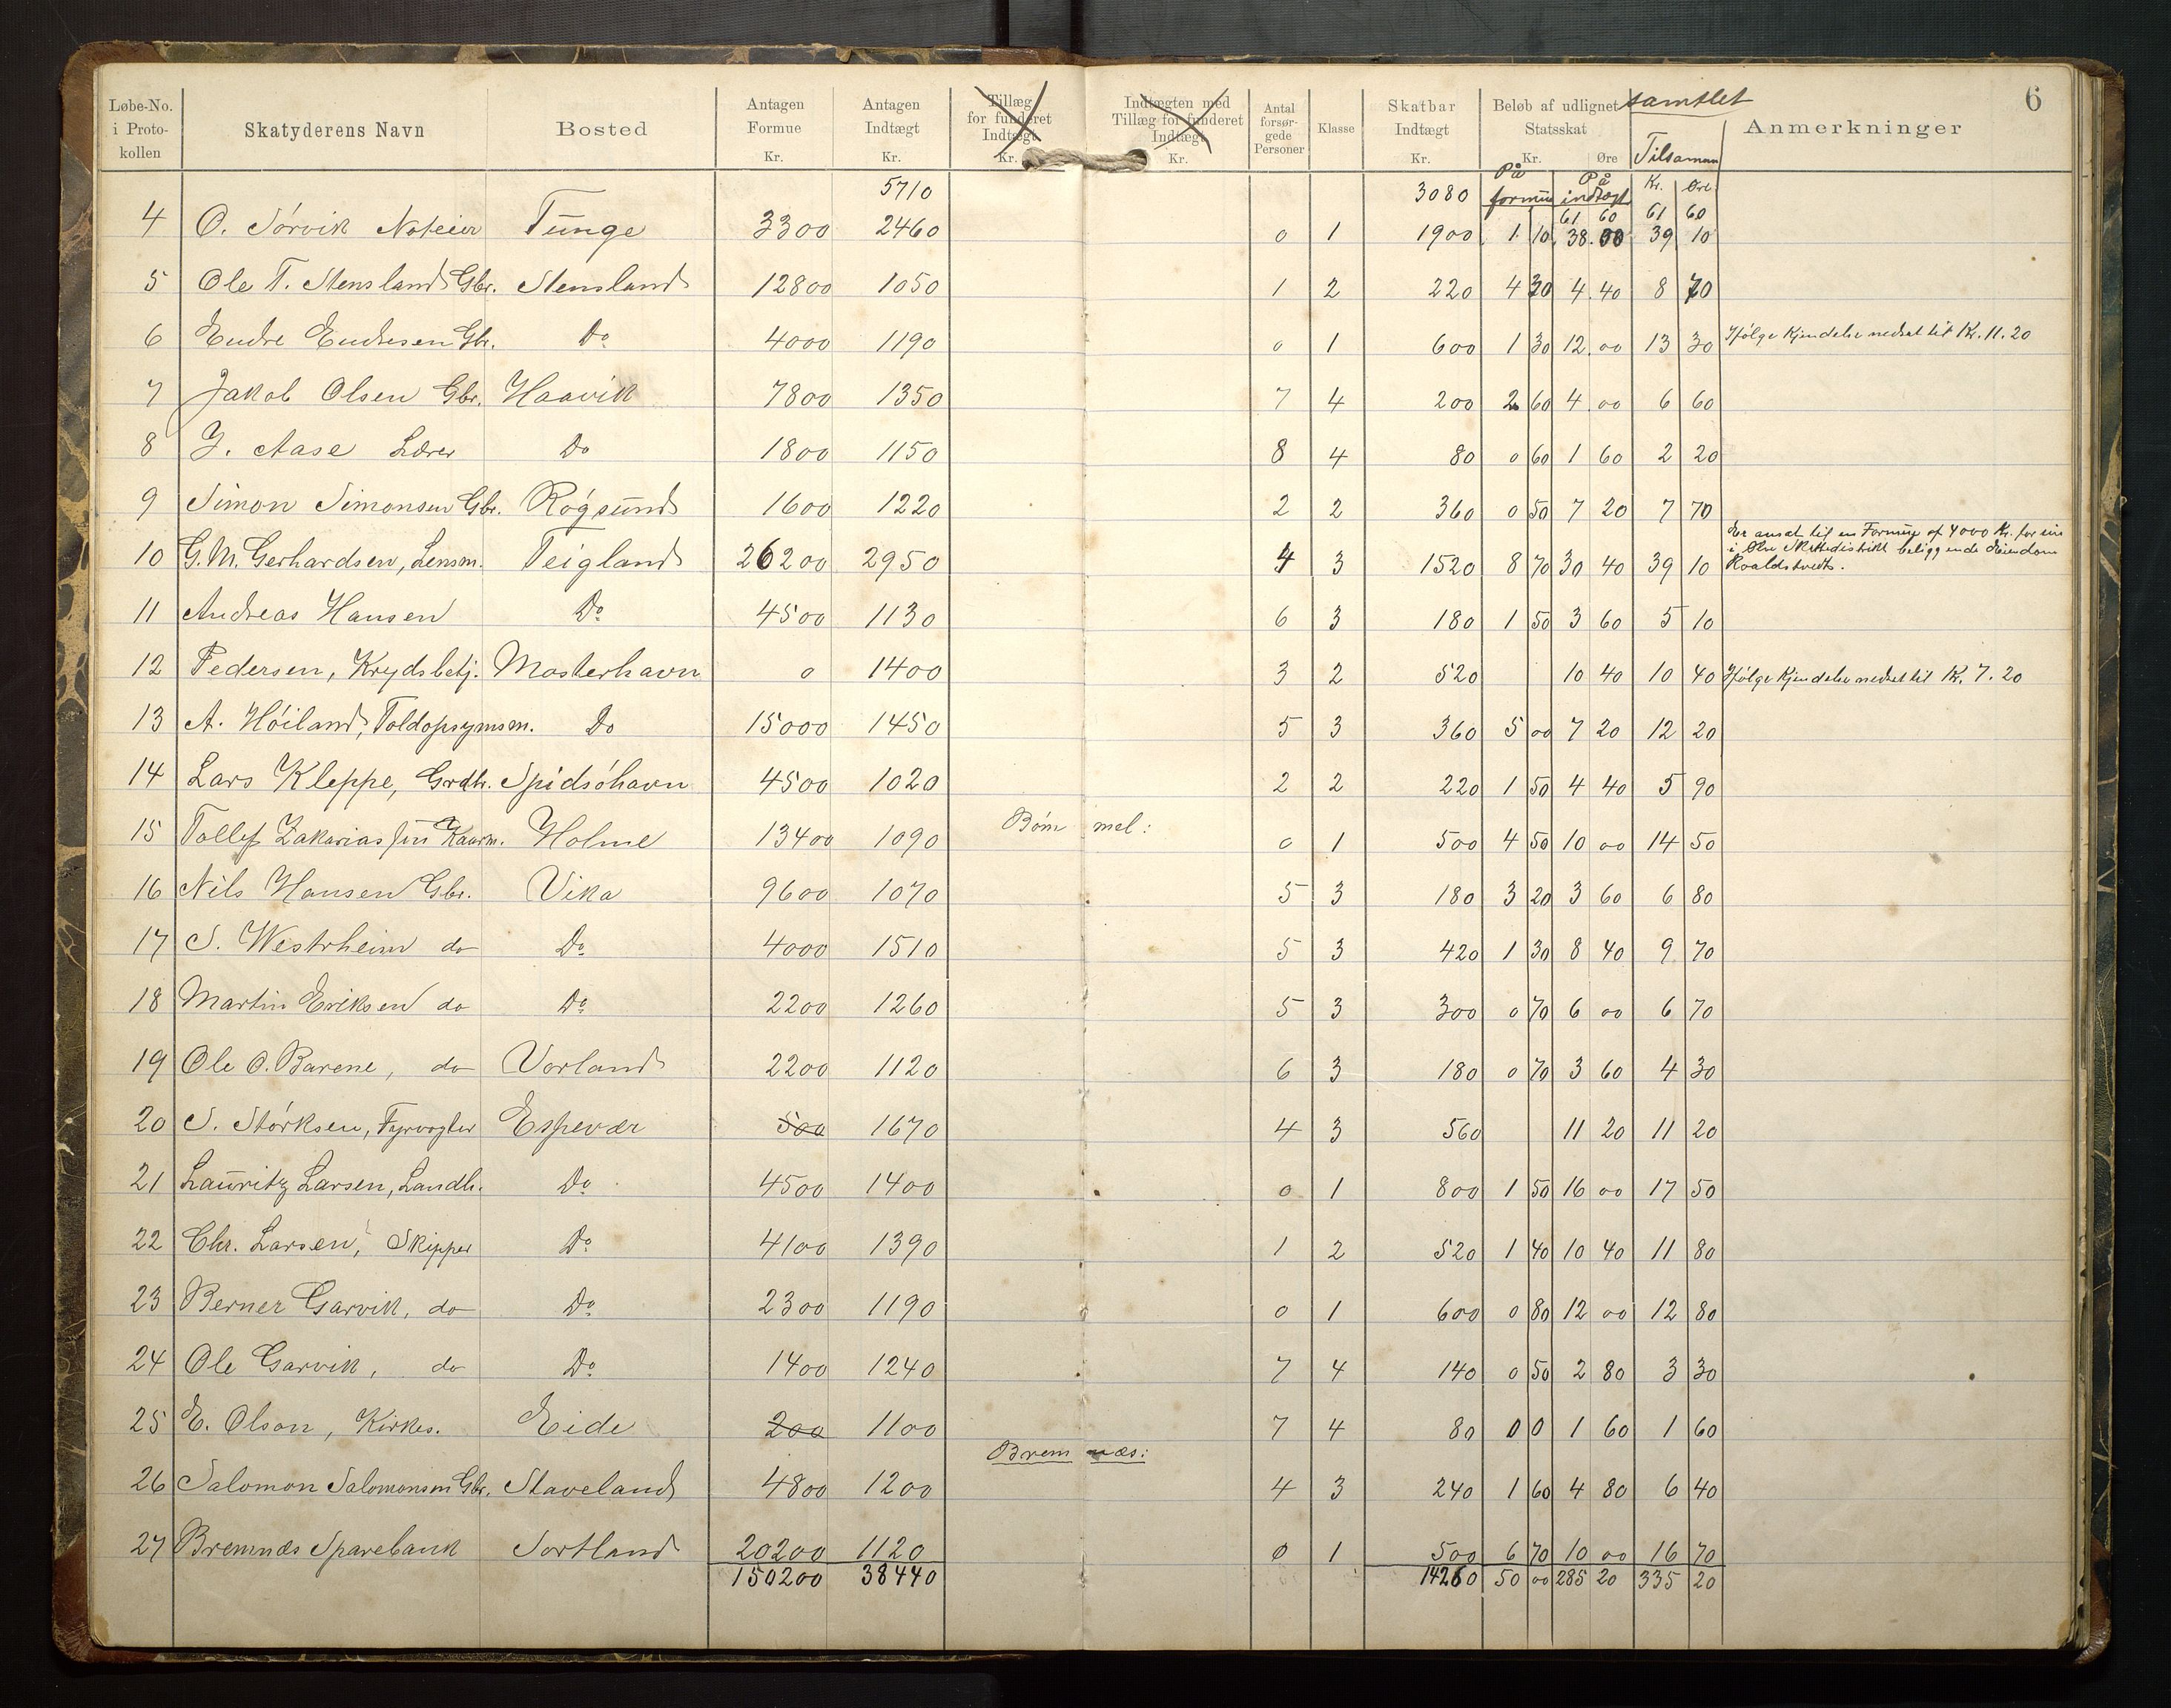 6
Løbe-No. i Proto-kollen | Skatyderens Navn | Bosted | Antagen Formue Kr. | Antagen Indtægt Kr. | Tillæg for funderet Indtægt Kr. | Indtægten med Tillæg for funderet Indtægt Kr. | Antal forsør-gede Personer | Klasse | Skatbar Indtægt Kr. | Beløb af udlignet Statsskat Kr. Øre | samtlet Tilsamman | Anmerkninger
5710 | 3080 | På formue | På indtægt | Kr. | Øre
61 60 | 61 60
4 | O. Sørvik Noteier | Tunge | 3300 | 2460 | 0 | 1 | 1900 | 1 10 | 38.00 | 39 10
5 | Ole T. Stensland Gbr. | Stensland | 12800 | 1050 | 1 | 2 | 220 | 4 30 | 4.40 | 8 70
6 | Endre Endresen Gbr. | Do | 4000 | 1190 | 0 | 1 | 600 | 1 30 | 12.00 | 13 30 | Ifølge Kjendelse nedsat til Kr. 11.20
7 | Jakob Olsen Gbr. | Haavik | 7800 | 1350 | 7 | 4 | 200 | 2 60 | 4.00 | 6 60
8 | J. Aase Lærer | Do | 1800 | 1150 | 8 | 4 | 80 | 0 60 | 1 60 | 2 20
9 | Simon Simonsen Gbr. | Røgsund | 1600 | 1220 | 2 | 2 | 360 | 0 50 | 7 20 | 7 70
10 | G.M. Gerhardsen, Lensm. | Teigland | 26200 | 2950 | 4 | 3 | 1520 | 8 70 | 30 40 | 39 10 | Er ansat til en Formue af 4000 Kr. for sin
i Ølen Skattedistrikt beliggende Eiendom
Roaldstvedt.
11 | Andreas Hansen | Do | 4500 | 1130 | 6 | 3 | 180 | 1 50 | 3 60 | 5 10
12 | Pedersen, Krydsbetj. | Mosterhavn | 0 | 1400 | 3 | 2 | 520 | 10 40 | 10 40 | Ifølge Kjendelse nedsat til Kr. 7.20
13 | A. Høiland, Toldopsynsm. | Do | 15000 | 1450 | 5 | 3 | 360 | 5 00 | 7 20 | 12 20
14 | Lars Kleppe, Grdbr. | Spidsøhavn | 4500 | 1020 | 2 | 2 | 220 | 1 50 | 4 40 | 5 90
Bømmel:
15 | Tollef Zakarias | Holme | 13400 | 1090 | 0 | 1 | 500 | 4 50 | 10 00 | 14 50
16 | Nils Hansen Gbr. | Vika | 9600 | 1070 | 5 | 3 | 180 | 3 20 | 3 60 | 6 80
17 | S. Westrheim do | Do | 4000 | 1510 | 5 | 3 | 420 | 1 30 | 8 40 | 9 70
18 | Martin Eriksen do | Do | 2200 | 1260 | 5 | 3 | 300 | 0 70 | 6 00 | 6 70
19 | Ole O. Barene, do | Vorland | 2200 | 1120 | 6 | 3 | 180 | 0 70 | 3 60 | 4 30
20 | S. Størksen, Fyrvogter | Espevær | 500 | 1670 | 4 | 3 | 560 | 11 20 | 11 20
21 | Lauritz Larsen, Landh. | Do | 4500 | 1400 | 0 | 1 | 800 | 1 50 | 16 00 | 17 50
22 | Chr. Larsen, Skipper | Do | 4100 | 1390 | 1 | 2 | 520 | 1 40 | 10 40 | 11 80
23 | Berner Garvik, do | Do | 2300 | 1190 | 0 | 1 | 600 | 0 80 | 12 00 | 12 80
24 | Ole Garvik, do | Do | 1400 | 1240 | 7 | 4 | 140 | 0 50 | 2 80 | 3 30
25 | E. Olson, Kirkes. | Eide | 200 | 1100 | 7 | 4 | 80 | 0 0 | 1 60 | 1 60
Bremnæs:
26 | Salomon Salomonsen Gbr. | Staveland | 4800 | 1200 | 4 | 3 | 240 | 1 60 | 4 80 | 6 40
27 | Bremnæs Sparebank | Sortland | 20200 | 1120 | 0 | 1 | 500 | 6 70 | 10 00 | 16 70
150200 | 38440 | 14260 | 50 00 | 285 20 | 335 20